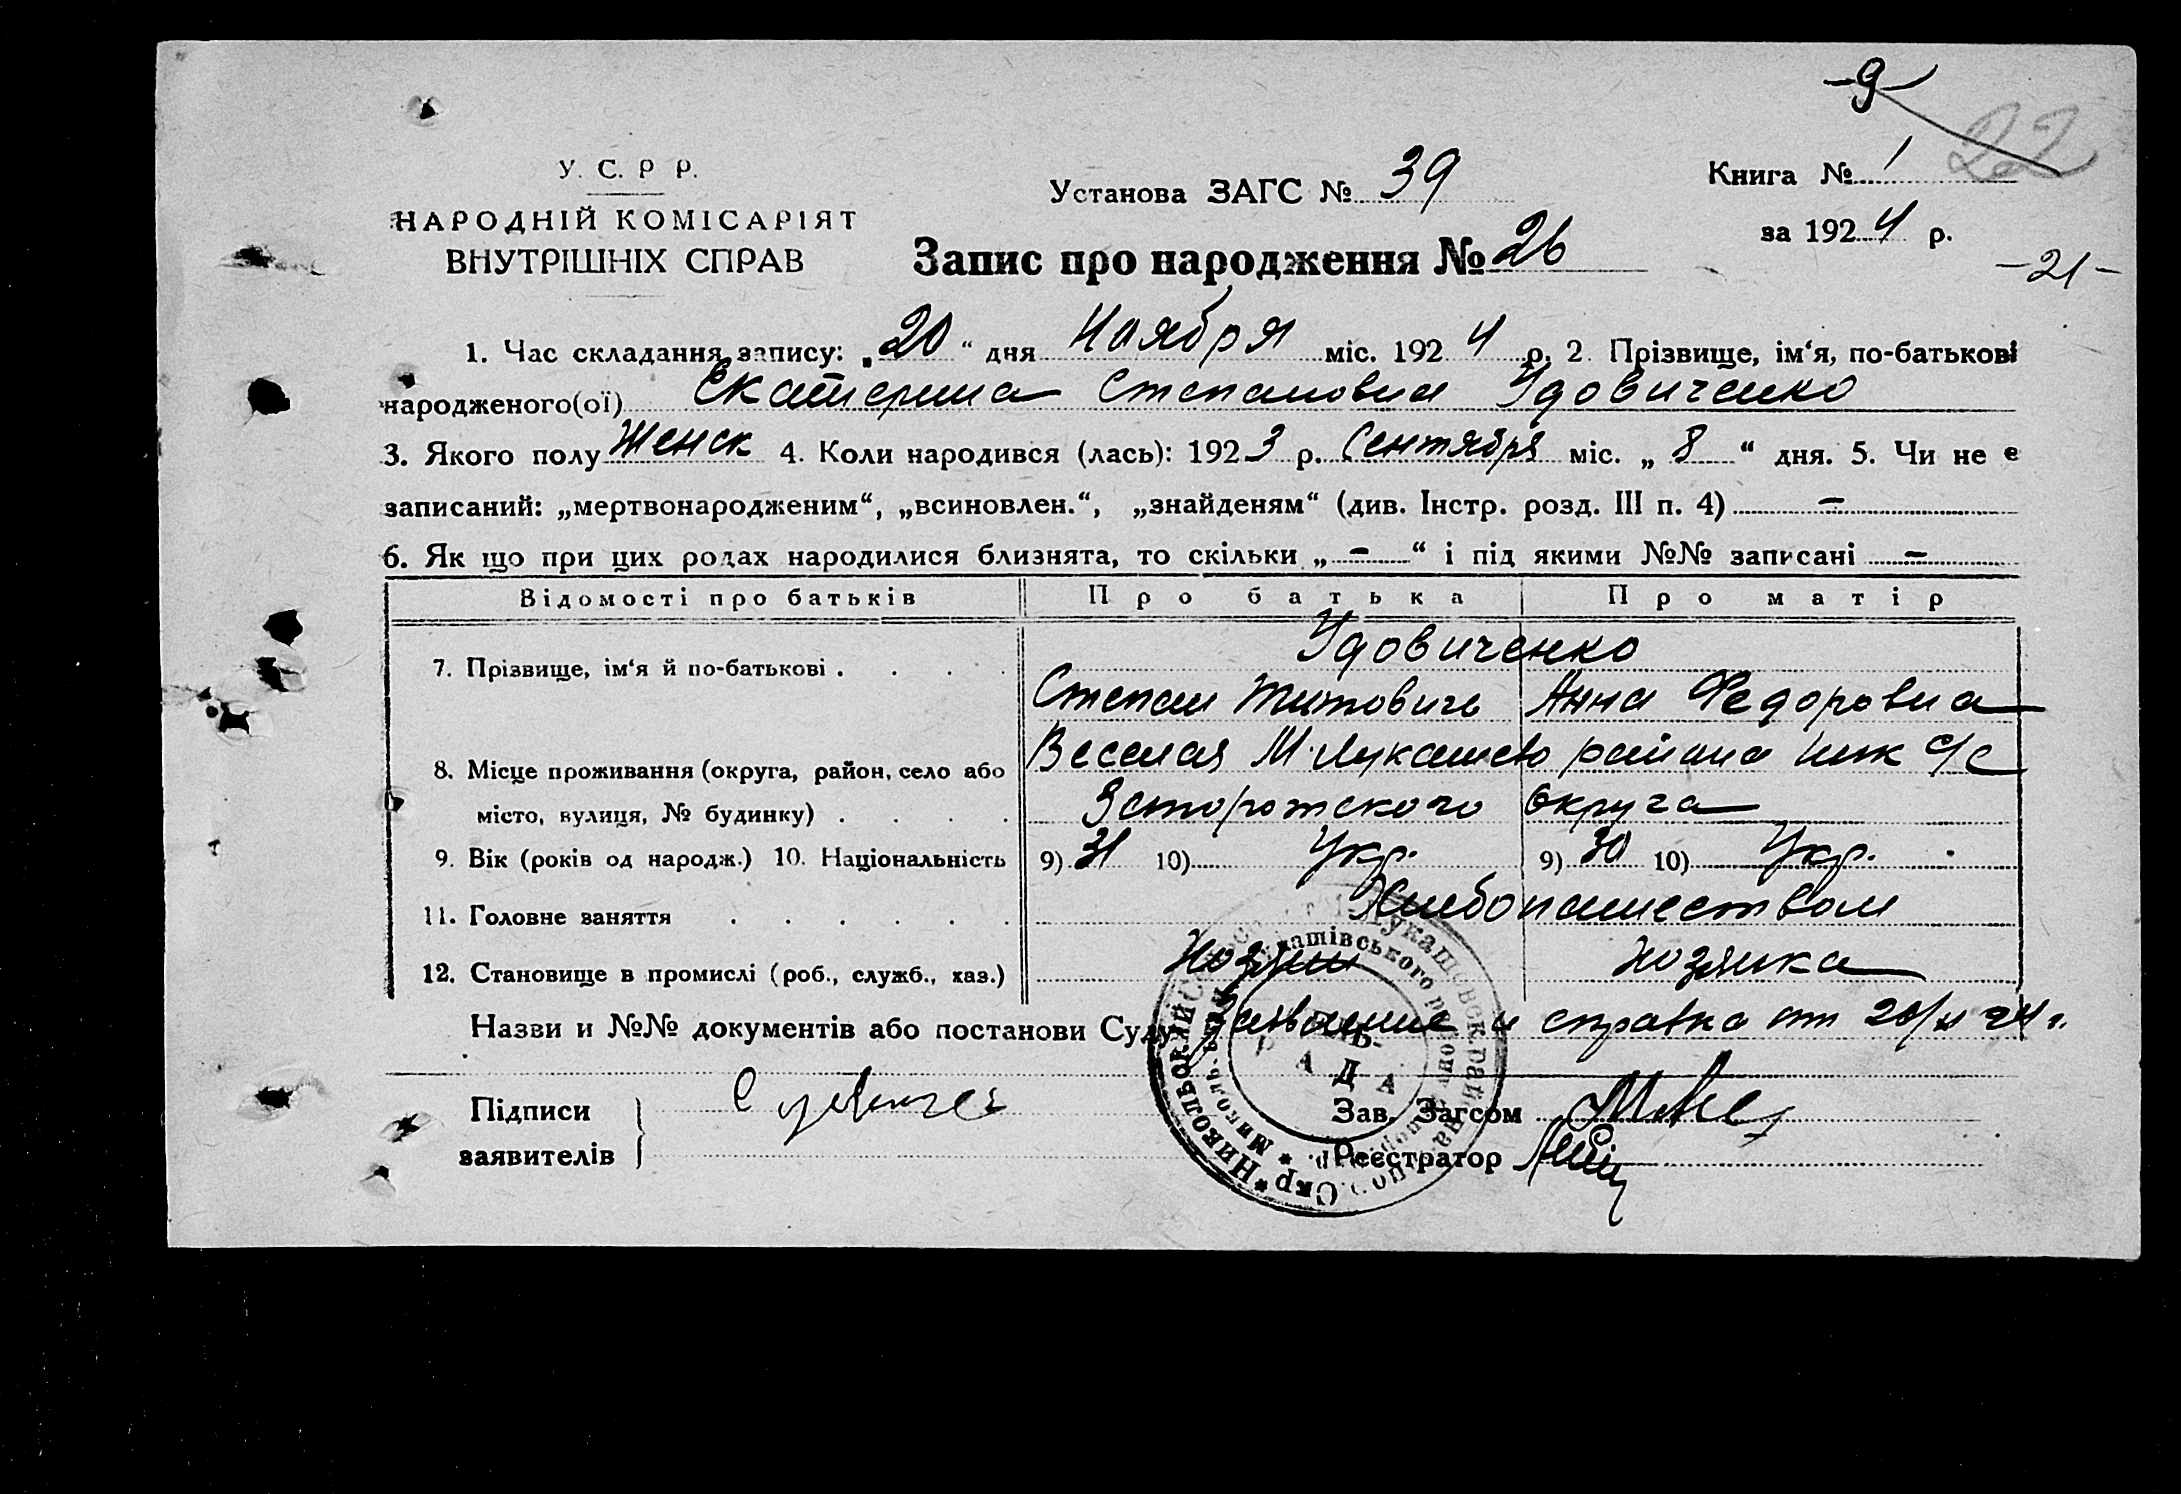 -9-
22
У. С. Р. Р.
НАРОДНІЙ КОМІСАРІЯТ
ВНУТРІШНІХ СПРАВ
Установа ЗАГС № 39
Книга № 1
за 1924 р.
Запис про народження № 26
-21-
1. Час складання запису: „20“ дня Ноября міс. 1924 р. 2. Прізвище, ім‘я, по-батькові
народженого(ої) Екатерина Степановна Удовиченко
3. Якого полу Женск 4. Коли народився (лась): 1923 р. Сентября міс. „8“ дня. 5. Чи не є
записаний: „мертвонародженим“, „всиновлен.“, „знайденям“ (див. Інстр. розд. III п. 4) –
6. Як що при цих родах народилися близнята, то скільки „–“ і під якими №№ записані –
Відомості про батьків Про батька Про матір
7. Прізвище, ім‘я й по-батькові . . . . Удовиченко
Степан Титович Анна Федоровна
8. Місце проживання (округа, район, село або Веселая М. Лукашево района Ник с/с
місто, вулиця, № будинку) . . . . Запорожского Округа
9. Вік (років од народж.) 10. Національність 9) 31 10) Укр. 9) 30 10) Укр.
11. Головне заняття . . . . . . Хлебопашеством
12. Становище в промислі (роб., служб., хаз.) Хозяин хозяйка
Назви и №№ документів або постанови Суду Заявление и справка от 20/XI 24 г.
Підписи
заявителів
Зав. Загсом
Реєстратор